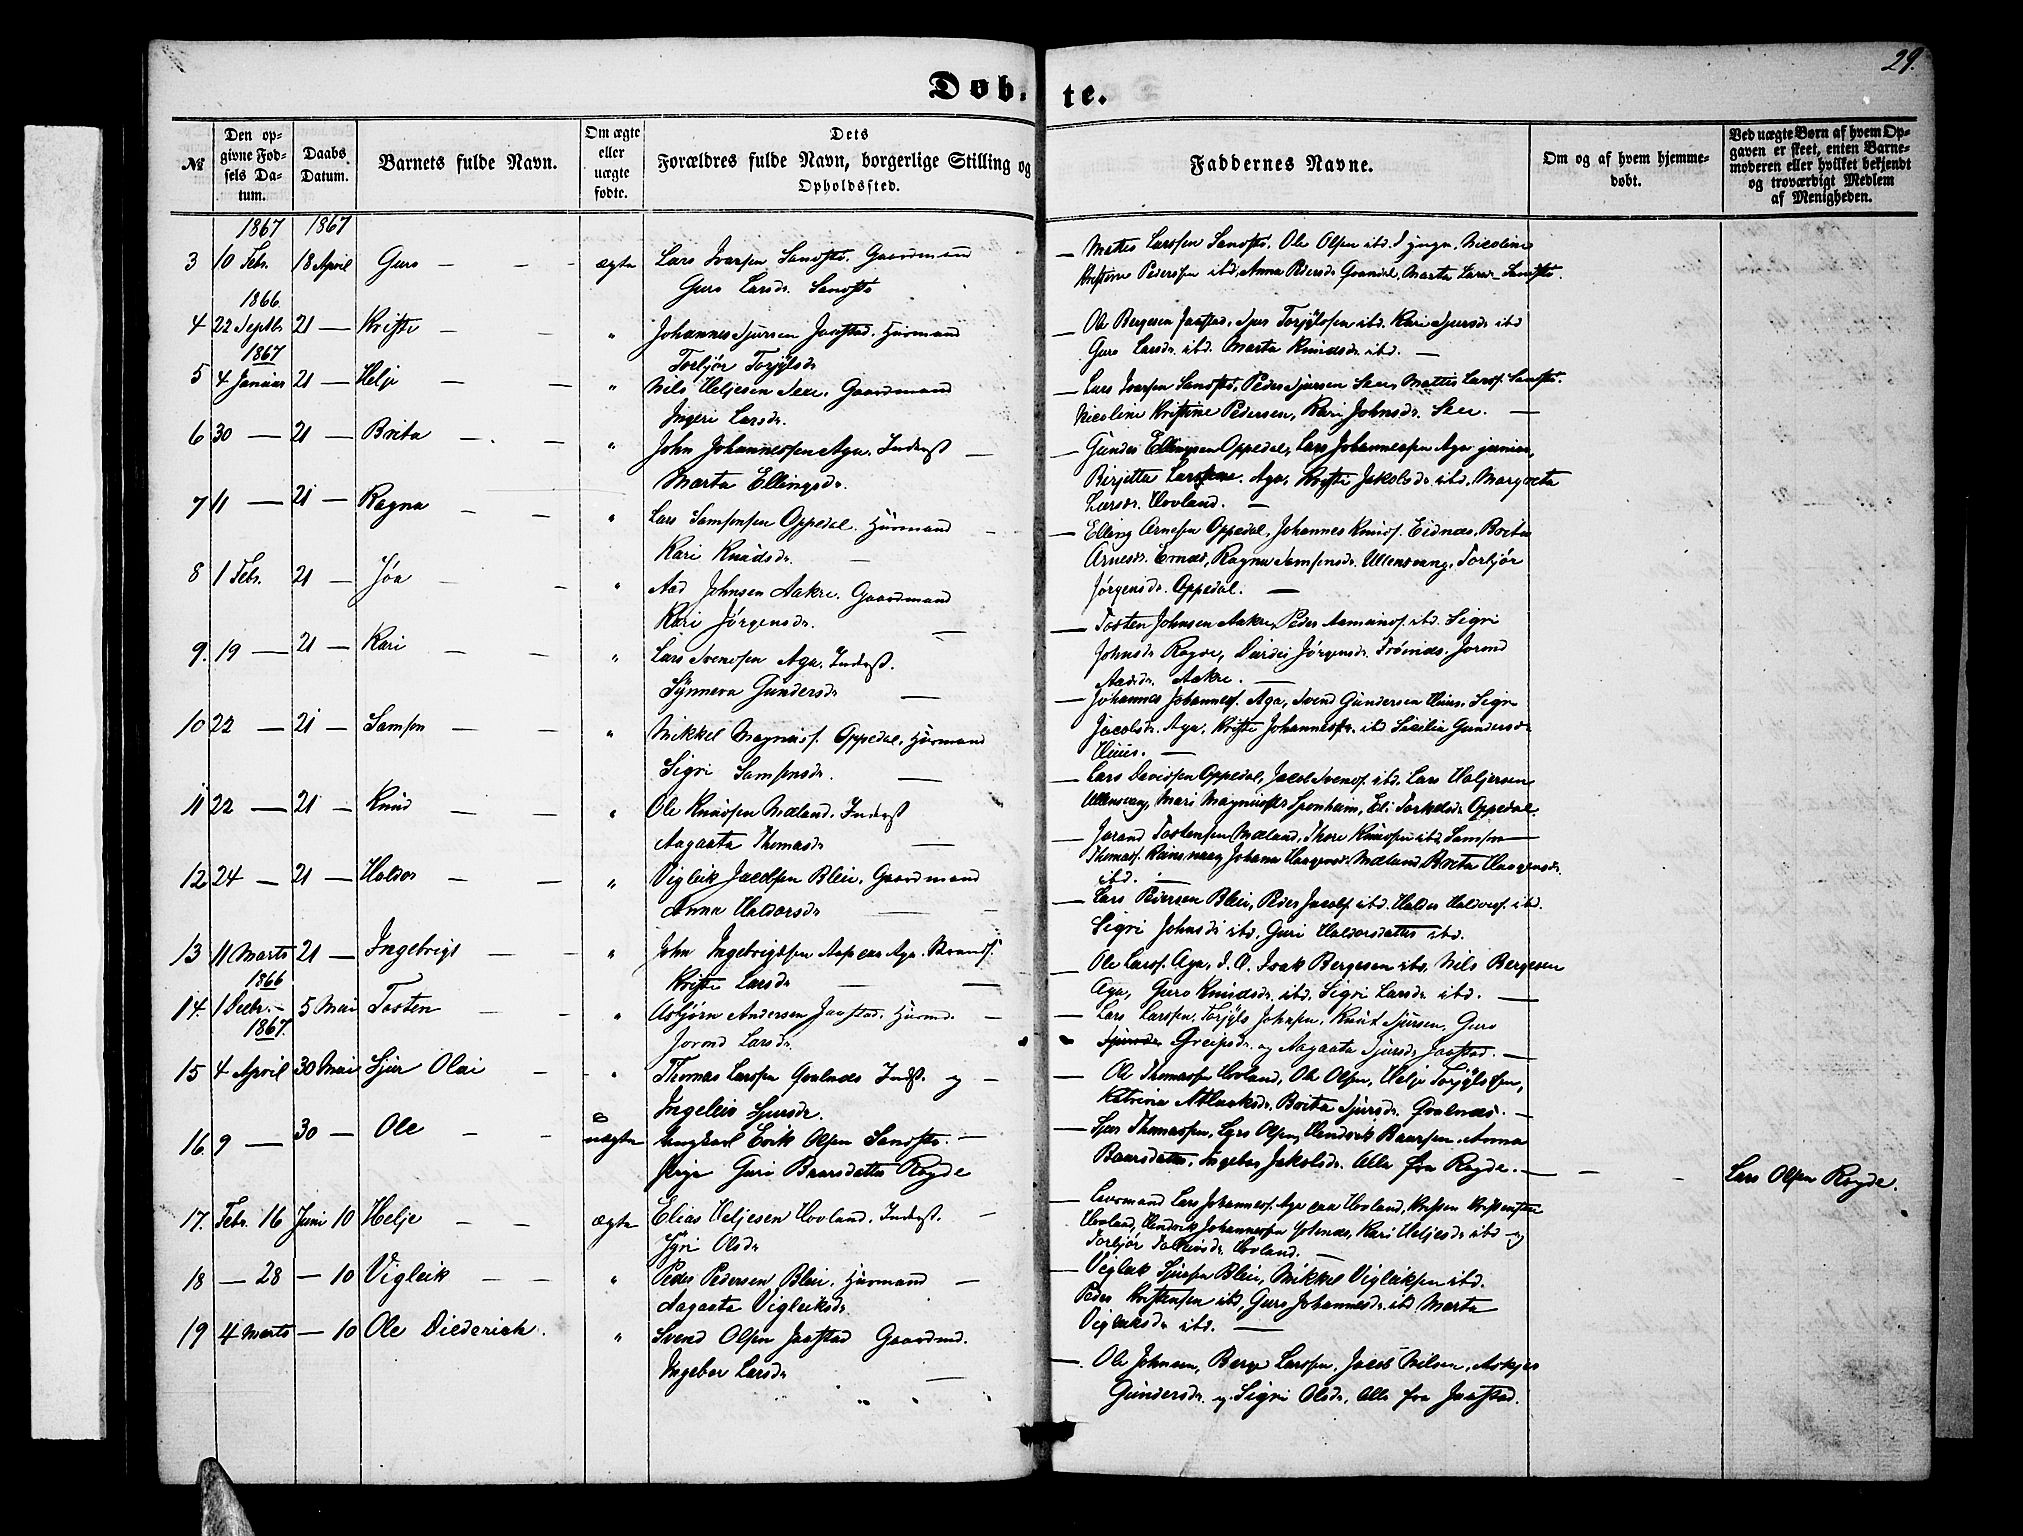 29.
Døb. te.
№
Den opgivne Fødsels Datum.
Daabs Datum.
Barnets fulde Navn.
Om ægte eller uægte fødte.
Dets Forældres fulde Navn, borgerlige Stilling og Opholdssted.
Faddernes Navne.
Om og af hvem hjemmedøbt.
Ved uægte Børn af hvem Opgaven er skeet, enten Barnemoderen eller hvilket bekjendt og troværdigt Medlem af Menigheden.
1867 1867
3 10 Febr. 18 April Guro — — — ægte Lars Ivarsen Sandsto. Gaardmand
Guro Larsdr. Sandsto
— Mattis Larssen Sandsto. Ole Olsen ibd. Nicoline
Kristine Pederssen ibd, Anna Pedersdr. Marta Larsdr. Sandsto.
1866
4 22 Septbr 21 — Kristi — — " Johannes Sjursen Jaastad. Huusmand
Torbjør Torgilsdr
— Ole Bergesen Jaastad, Sjur Torgilssen ibd. Kari Sjursdr ibd
Guro Larsdr. ibd. Marta Knudsdr. ibd. —
1867
5 4 Januar 21 — Helje — — " Nils Heljesen Sexe. Gaardmand
Ingeri Larsdr.
— Lars Ivarsen Sandsto, Peder Sjursen Sexe, Mattis Larss. Sandsto.
Nicoline Kristine Pedersen, Kari Johnsdr. Sexe. —
6 30 — 21 — Brita — — " John Johannessen Aga. Inderst —
Marta Ellingsdr.
— Gunder Ellingsen Oppedal, Lars Johannessen Aga junior,
Birjitta Aga, Kristi Jakobsdr. ibd. Margreta
Larsdr. Hovland. —
7 11 — 21 — Ragna — — " Lars Samsonsen Oppedal. Huusmand —
Kari Knudsdr. —
— Elling Arnesen Oppedal, Johannes Knuds. Eidnæs, Brita
Arnesdr. Ernæs, Ragna Samsonsdr. Ullensvang, Torbjør
Jørgensdr. Oppedal. —
8 1 Febr. 21 — Joa — — " Aad Johnsen Aakre. Gaardmand
Kari Jørgensdr. —
— Tosten Johnsen Aakre, Peder Aamunds. ibd. Sigri
Johnsdr Rogde, Durdei Jørgensdr. Jorond
Aadsdr. Aakre. —
9. 19 — 21 — Kari — — " Lars Svendsen Aga. Inderst.
Synneva Gundersdr —
— Johannes Johanness. Aga, Svend Gundersen Huus, Sigri
Jacobsdr. Aga, Kristi Johannesdr. ibd Sicilia Gundersdr
Huus. —
10 22 — 21 — Samson — — " Mikkel Magnuss. Oppedal, Huusmand
Sigri Samsonsdr. —
— Lars Davidsen Oppedal, Jacob Svends. ibd. Lars Haljersen
Ullensvang, Mari Magnusdr Sponheim, Eli Torkelsdr Oppedal.
11 22 — 21 — Knud — — " Ole Knudsen Mæland. Inderst
Aagaata Thomasdr —
— Jorand Tostensen Mæland, Thore Knudsen ibd, Samson
Thomass. Johanna Haagensdr. Mæland Brita Haagensdr.
ibd. —
12 24 — 21 — Haldor — — " Vigleik Jacobsen Bleie. Gaardmand
Anna Haldorsdr —
— Lars Pedersen Bleie, Peder Jacobs. ibd. Haldor Haldors. ibd.
Sigri Johnsdr ibd, Guri Haldorsdatter ibd.
13 11 Marts 21 — Ingebrigt — — " John Ingebrigtsen Aga.
Kristi Larsdr — —
— Ole Larss. Aga, Isak Bergesen ibd, Nils Bergesen
Aga, Guro Knudsdr. ibd. Sigri Larsdr ibd. —
1866
14. 1 Decbr. 5 Mai Tosten — — " Asbjørn Andersen Jaastad. Huusmd. —
Jorond Larsdr.
— Lars Larssen, Torgils Johnsen, Knud Sjursen, Guro
Greipsdr. og Aagaata Sjursdr Jaastad. —
1867.
15 4 April 30 Mai Sjur Olai — — " Thomas Larssen Qvalnæs Indst. og —
Ingeleiv Sjursdr.
— Ole Thomassen Hovland, Ole Olsen, Helje Torgilssen,
Katrina Brita Sjursdr. Qvalnæs. —
16. 9 — 30 — Ole — — uægte Ungkarl Erik Olsen Sandsto. —
Pige Guri Baarsdatter Rogde
— Sjur Thomassen, Lars Olsen, Hendrik Baarsen, Anna
Baarsdatter, Ingebor Jakobsdr. Alle fra Rogde. — — Lars Olsen Rogde.
17. Febr. 16 Juni 10 Helje — — Ægte Elias Heljesen Hovland. Inderst. —
Syri Olsdr
— Lars Johanness. Aga Hovland, Kristen Kristensen
Hovland, Hendrik Johannessen Kari Heljesdr ibd og
Torbjør Hovland. —
18 — 28 — 10 Vigleik — — " Peder Pedersen Bleie. Huusmand —
Aagaata Vigleiksdr.
— Vigleik Sjursen Bleie, Mikkel Vigleiksen ibd.
Peder Kristensen ibd, Guro Johannesdr. ibd Marta
Vigleiksdr ibd. —
19 4 Marts — 10 Ole Diederich. " Svend Olsen Jaastad Gaardmd.
Ingebor Larsdr —
— Ole Johnsen, Berge Larssen, Jacob Nilsen,
Gundersdr. og Sigri Olsdr, Alle fra Jaastad.